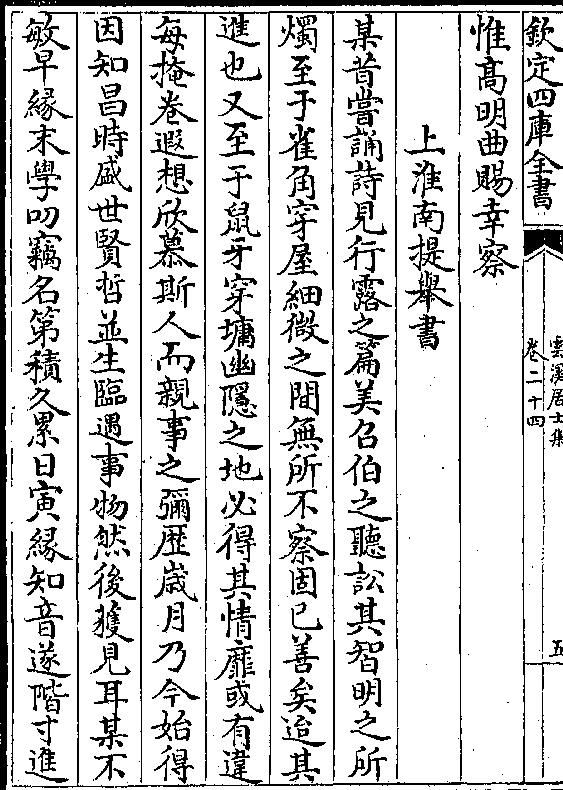 欽定四庫全書
雲溪居士集
卷二十四
五
惟髙明曲賜幸察
上淮南提舉書
某昔嘗誦詩見行露之篇美召伯之聽訟其智明之所
燭至于雀角穿屋細微之間無所不察固已善矣迨其
進也又至于鼠牙穿墉幽隱之地必得其情靡或有違
每掩卷遐想欣慕斯人而親事之彌歴歳月乃今始得
因知昌時盛世賢哲並生臨遇事物然後獲見耳某不
敏早緣末學叨竊名第積久累日寅緣知音遂階寸進